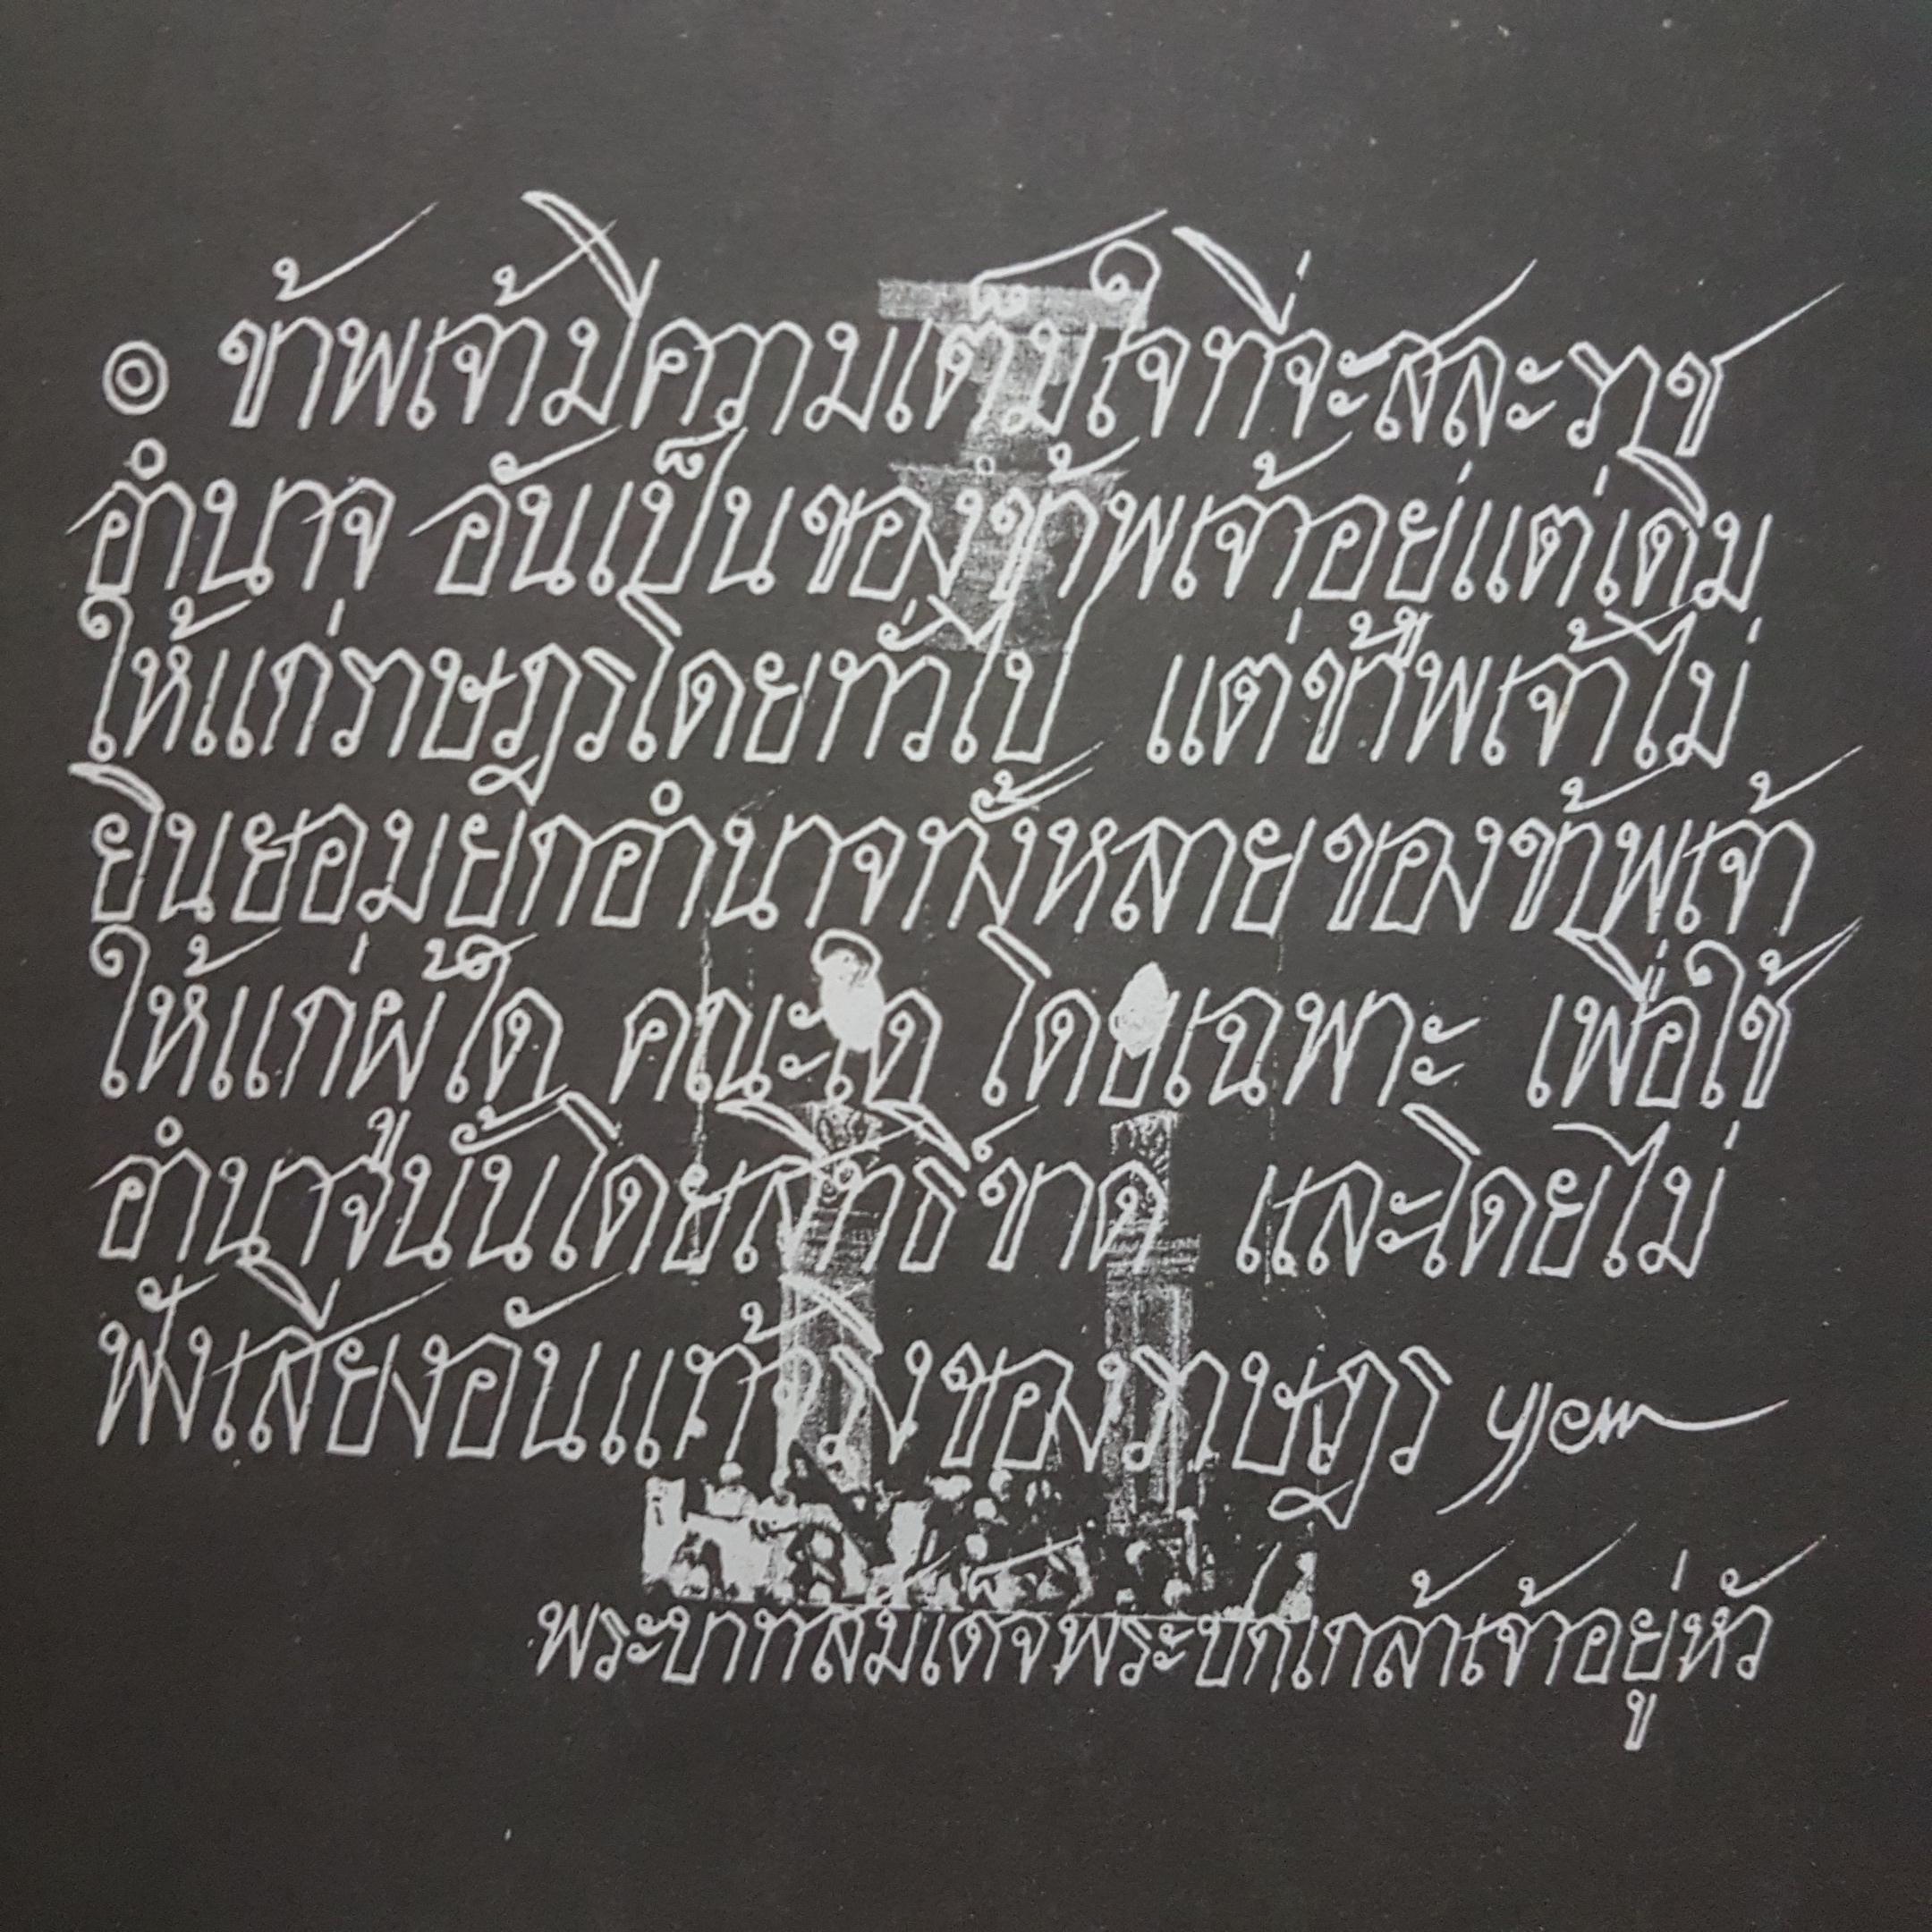 ๏ ข้าพเจ้ามีความเต็มใจที่จะสละราช
อำนาจ อันเป็นของข้าพเจ้าอยู่แต่เดิม
ให้แก่ราษฎรโดยทั่วไป แต่ข้าพเจ้าไม่
ยินยอมยกอำนาจทั้งหลายของข้าพเจ้า
ให้แก่ผู้ใด คณะใด โดยเฉพาะ เพื่อใช้
อำนาจนั้นโดยสิทธิขาด และโดยไม่
ฟังเสียงอันแท้จริงของราษฎร
พระบาทสมเด็จพระปกเกล้าเจ้าอยู่หัว